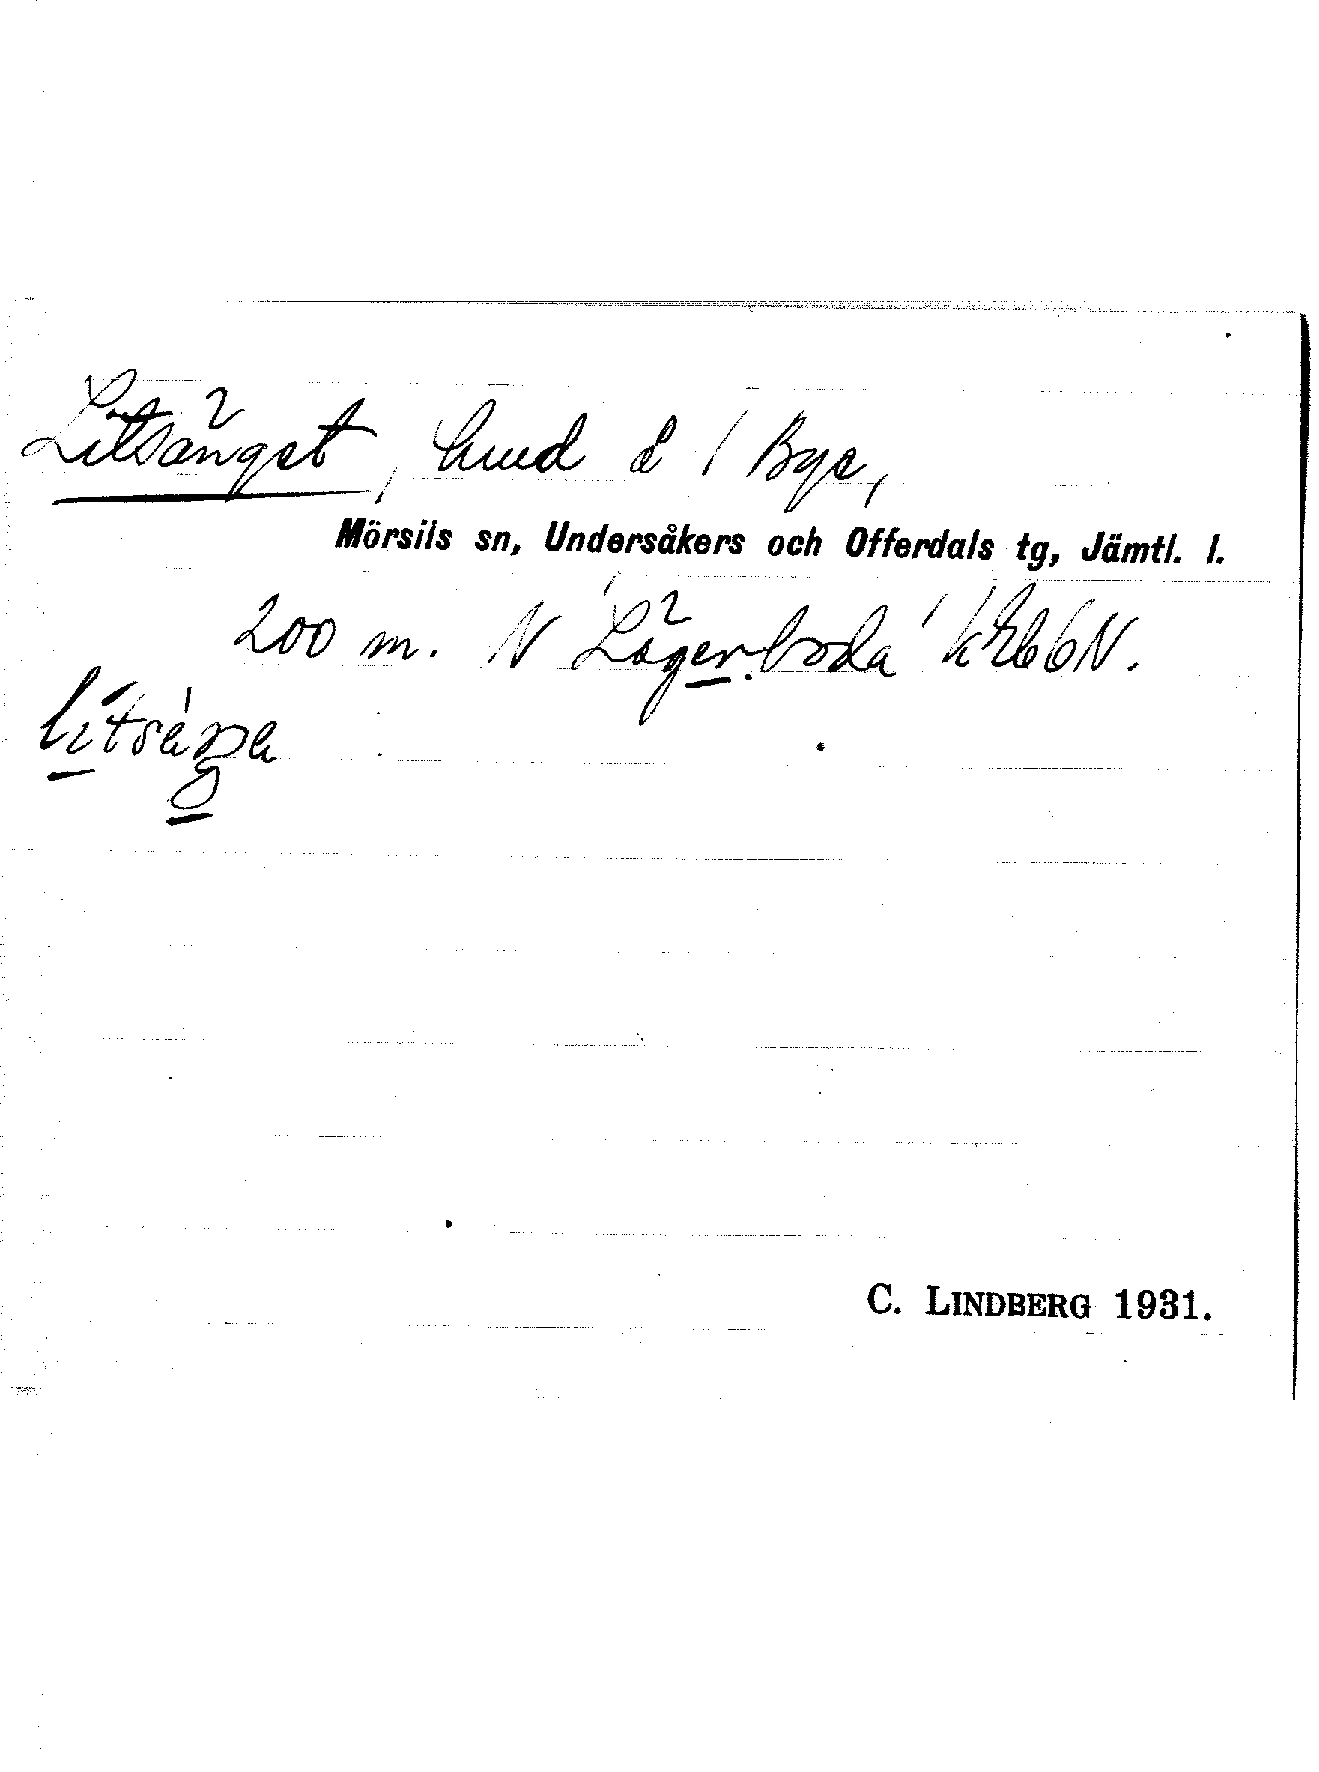 Litsänget, lund å / Bye,
Mörsils sn, Undersåkers och Offerdals tg, Jämtl. l.
200 m. N Lägerboda
lítsàŋa
C. LINDBERG 1931.